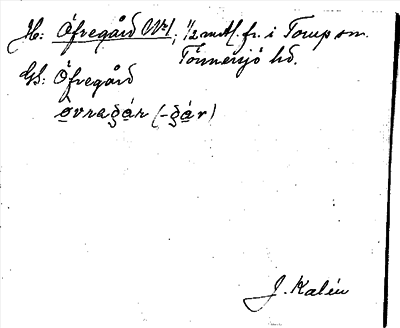 H: Öfregård No 1; 1/2 mtl. fr. i Torup sn.
Tönnersjö hd.
GS: Öfregård
øvragår (-går)
J. Kalén